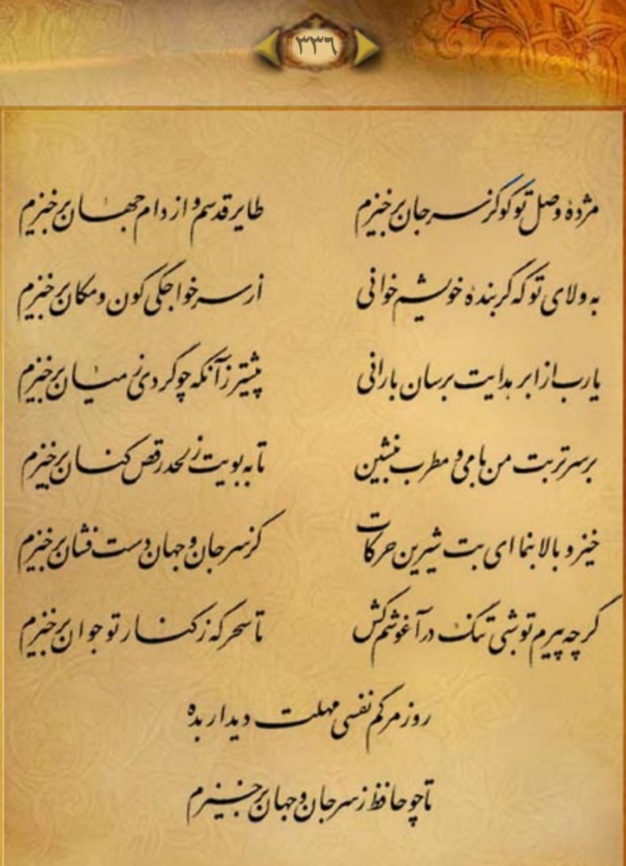 ۳۳۶
مژدهٔ وصل تو کو کز سر جان برخیزم
طایر قدسم و از دام جهان برخیزم
به ولای تو که گر بندهٔ خویشم خوانی
از سر خواجگی کون و مکان برخیزم
یا رب از ابر هدایت برسان بارانی
پیشتر زآنکه چو گردی ز میان برخیزم
بر سر تربت من با می و مطرب بنشین
تا به بویت ز لحد رقص کنان برخیزم
خیز و بالا بنما ای بت شیرین حرکات
کز سر جان و جهان دست فشان برخیزم
گر چه پیرم تو شبی تنگ در آغوشم کش
تا سحرگه ز کنار تو جوان برخیزم
روز مرگم نفسی مهلت دیدار بده
تا چو حافظ ز سر جان و جهان برخیزم